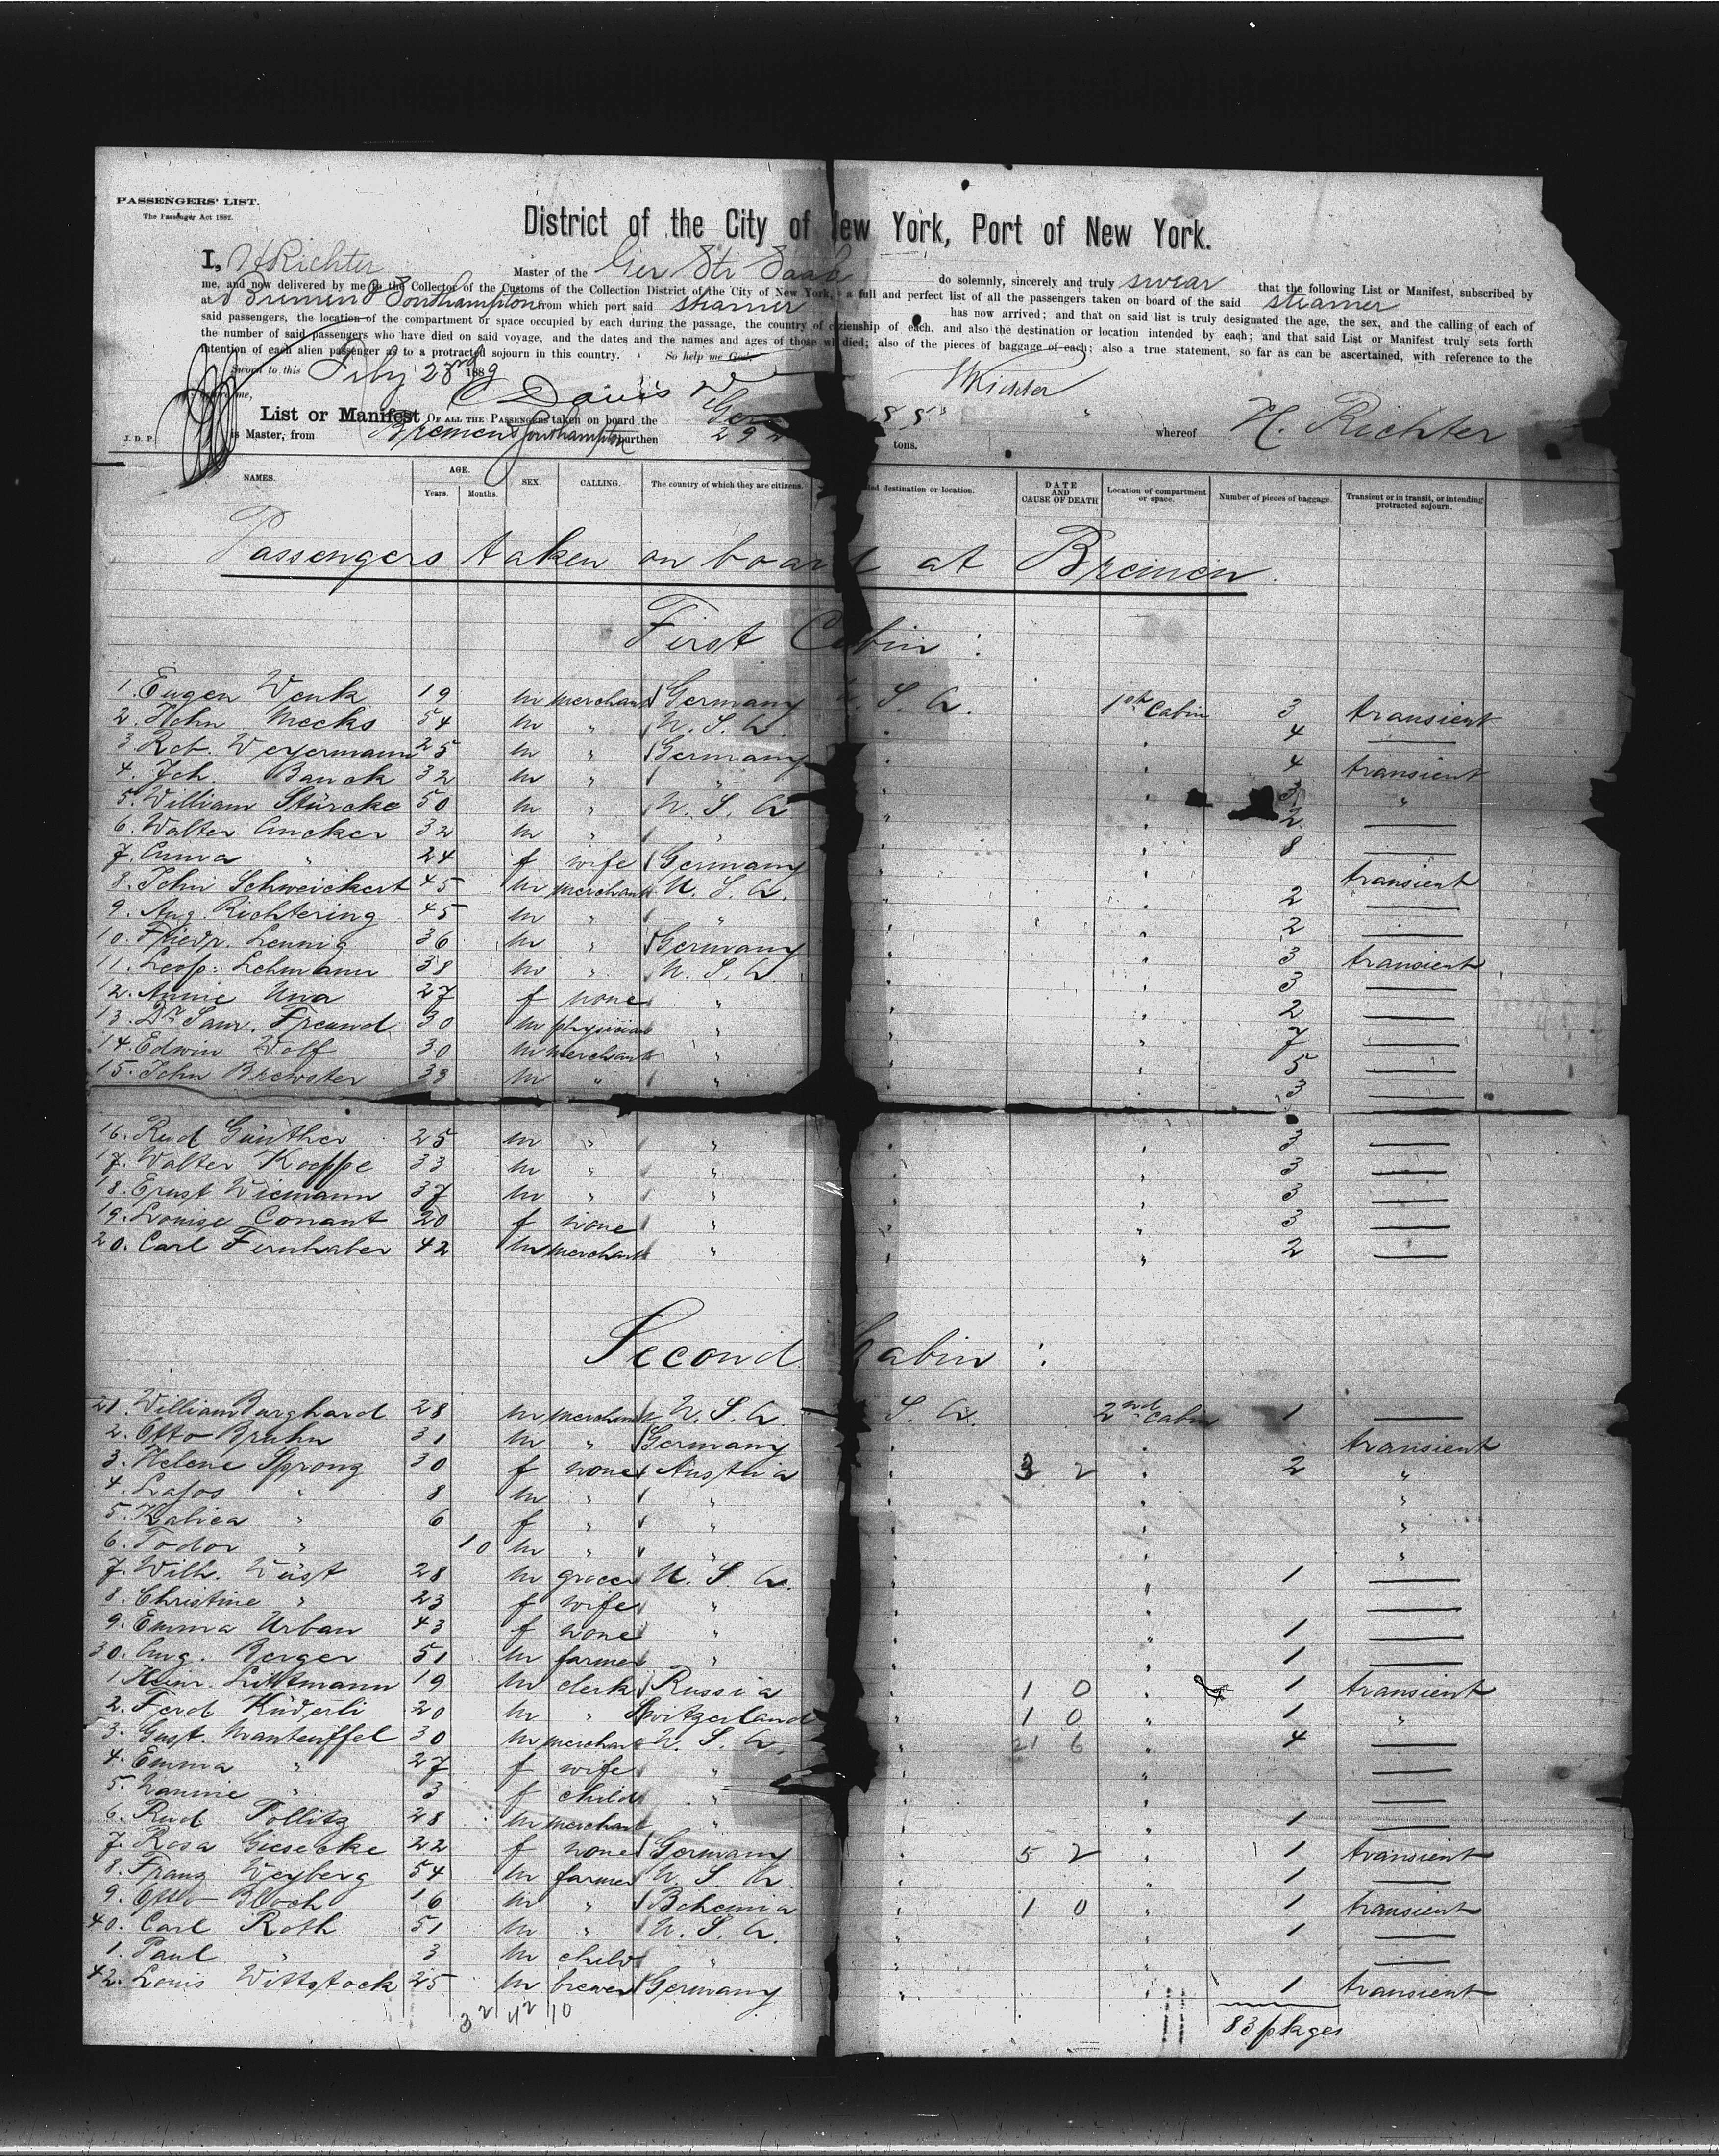 PASSENGERS' LIST.
The Passenger Act 1882.
District of the City of New York, Port of New York.
I, H Richter Master of the Ger Str Saale do solemnly, sincerely and truly swear that the following List or Manifest, subscribed by
me, and now delivered by me to the Collector of the Customs of the Collection District of the City of New York, a full and perfect list of all the passengers taken on board of the said steamer
at Bremen & Southampton from which port said steamer has now arrived; and that on said list is truly designated the age, the sex, and the calling of each of
said passengers, the location of the compartment or space occupied by each during the passage, the country of citizenship of each, and also the destination or location intended by each; and that said List or Manifest truly sets forth
the number of said passengers who have died on said voyage, and the dates and the names and ages of those who died; also of the pieces of baggage of each; also a true statement, so far as can be ascertained, with reference to the
intention of each alien passenger as to a protracted sojourn in this country. So help me God.
Sworn to this Feby 23rd 1889 HRichter
before me, C Davis
List or Manifest OF ALL THE PASSENGERS taken on board the Ger SS
J. D. P. is Master, from Bremen & Southampton burthen 292 tons. whereof H. Richter
NAMES. AGE. Years. Months. SEX. CALLING. The country of which they are citizens. destination or location. DATE AND CAUSE OF DEATH Location of compartment or space. Number of pieces of baggage. Transient or in transit, or intending protracted sojourn.
Passengers taken on board at Bremen.
First Cabin:
1. Eugen Wenk 19 m merchant Germany U. S. A. 1st Cabin 3 transient
2. John Meeks 54 m " U. S. A. " " 4 —
3. Rob. Weyermann 25 m " Germany " " 4 transient
4. Joh. Banck 32 m " " " " 3 "
5. William Stürcke 50 m " U. S. A " " 2 —
6. Walter Ancker 32 m " " " " 8 —
7. Emma " 24 f wife Germany " " transient
8. John Schweickert 45 m merchant U. S. A. " " 2 —
9. Aug. Richtering 45 m " " " " 2 —
10. Friedr. Lennig 36 m " Germany " " 3 transient
11. Leop. Lehmann 38 m " U. S. A " " 3 —
12. Annie Una 27 f none " " " 2 —
13. Dr Sam. Freund 30 m physician " " " 7 —
14. Edwin Wolf 30 m merchant " " " 5 —
15. John Brewster 38 m " " " " 3 —
16. Rud Günther 25 m " " " " 3 —
17. Walter Koeppe 33 m " " " " 3 —
18. Ernst Wiemann 37 m " " " " 3 —
19. Louise Conant 20 f none " " " 3 —
20. Carl Fernhaber 42 m merchant " " " 2 —
Second Cabin:
21. William Burghard 28 m merchant U. S. A. S. A. 2nd Cabin 1 —
2. Otto Bruhn 31 m " Germany " " transient
3. Helene Sprong 30 f none Austria " 3 2 " 2 "
4. Lajos " 8 m " " " " "
5. Kalica " 6 f " " " " "
6. Todor " 10 m " " " " "
7. Wilh. Wüst 28 m grocer U. S. A. " " 1 —
8. Christine " 23 f wife " " " —
9. Emma Urban 43 f none " " " 1 —
30. Aug. Berger 51 m farmer " " " 1 —
1. Heinr. Littmann 19 m clerk Russia " 1 0 " 1 transient
2. Ferd Küderli 20 m " Switzerland " 1 0 " 1 "
3. Gust. Manteuffel 30 m merchant U. S. A. " 21 6 " 4 —
4. Emma " 27 f wife " " " —
5. Nannie " 3 f child " " " —
6. Rud Pollitz 28 m merchant " " " 1 —
7. Rosa Giesecke 22 f none Germany " 5 2 " 1 transient
8. Franz Weyberg 54 m farmer U. S. A. " " 1 —
9. Otto Bloch 16 m " Bohemia " 1 0 " 1 transient
40. Carl Roth 51 m " U. S. A. " " 1 —
1. Paul " 3 m child " " " —
42. Louis Wittstock 25 m brewer Germany " " 1 transient
32 42 10 83 pkages